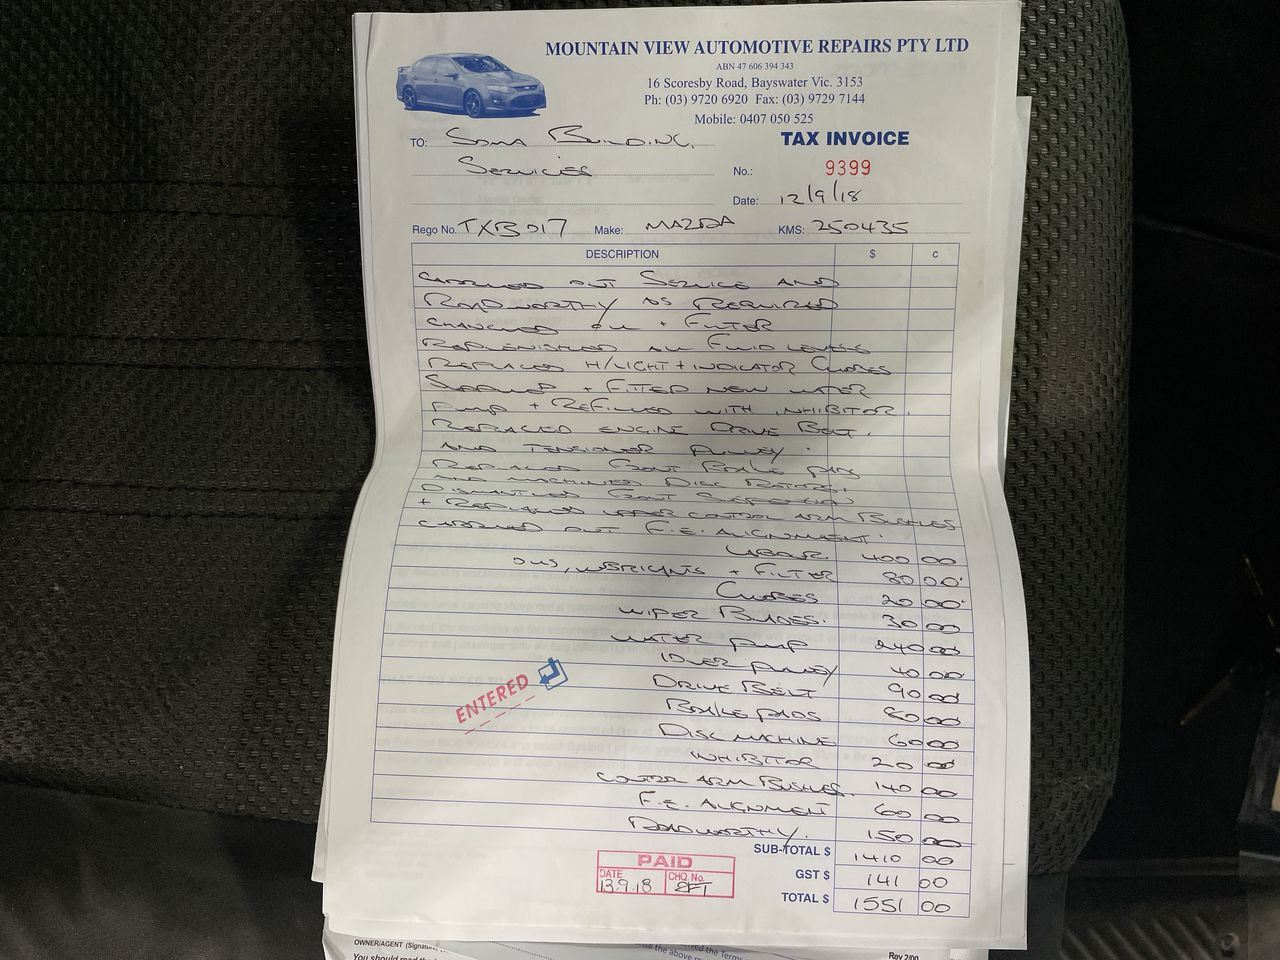 MOUNTAIN VIEW AUTOMOTIVE REPAIRS PTY LTD
ABN 47 606 394 343
16 Scoresby Road, Bayswater Vic. 3153
Ph: (03) 9720 6920 Fax: (03) 9729 7144
Mobile: 0407 050 525
TO: SOMA BUILDING TAX INVOICE
SERVICES No.: 9399
Date: 12/9/18
Rego No. TXB 017 Make: MAZDA KMS: 250435
DESCRIPTION $ c
CARRIED OUT SERVICE AND
ROADWORTHY AS REQUIRED
CHANGED OIL + FILTER
REPLENISHED ALL FLUID LEVELS
REPLACED H/LIGHT + INDICATOR GLOBES
SUPPLIED + FITTED NEW WATER
PUMP + REFILLED WITH INHIBITOR.
REPLACED ENGINE DRIVE BELT.
AND TENSIONER PULLEY.
REPLACED FRONT BRAKE PADS
AND MACHINED DISC ROTORS.
DISMANTLED FRONT SUSPENSION
+ REPLACED UPPER CONTROL ARM BUSHES
CARRIED OUT F.E. ALIGNMENT.
LABOUR 400 00
OILS, LUBRICANTS + FILTER 80 00
GLOBES 20 00
WIPER BLADES. 30 00
WATER PUMP 240 00
IDLER PULLEY 40 00
DRIVE BELT 90 00
BRAKE PADS 80 00
DISC MACHINE 60 00
INHIBITOR 20 00
CONTROL ARM BUSHES. 140 00
F.E. ALIGNMENT 60 00
ROADWORTHY. 150 00
ENTERED
SUB-TOTAL $ 1410 00
GST $ 141 00
TOTAL $ 1551 00
PAID
DATE CHQ. No.
13.9.18 EFT
OWNER/AGENT (Signature)
You should read the
Rev 2/00